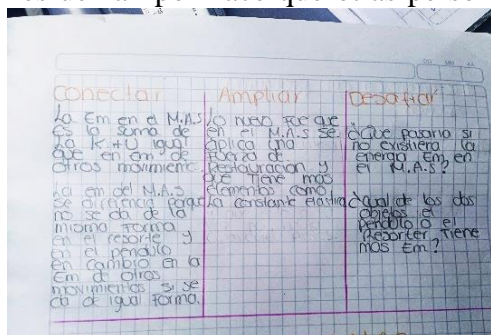 Conectar
La Em en el M.A.S
es la suma de
La K+U igual
que en em de
otros movimiento
La em del M.A.S
se diferencia porque
no se da de la
misma forma
en el resorte y
en el pendulo
en cambio en la
Em de otros
movimientos si se
da de igual forma.
Ampliar
Lo nuevo fue que
en el M.A.S se
aplica una
Fuerza de
Restauracion y
que tiene mas
elementos como
La constante elastica
Desafiar
¿Que pasaria si
no existiera la
energia Em, en
el M.A.S?
¿Cual de los dos
objetos el
pendulo o el
Resorter tiene
mas Em?